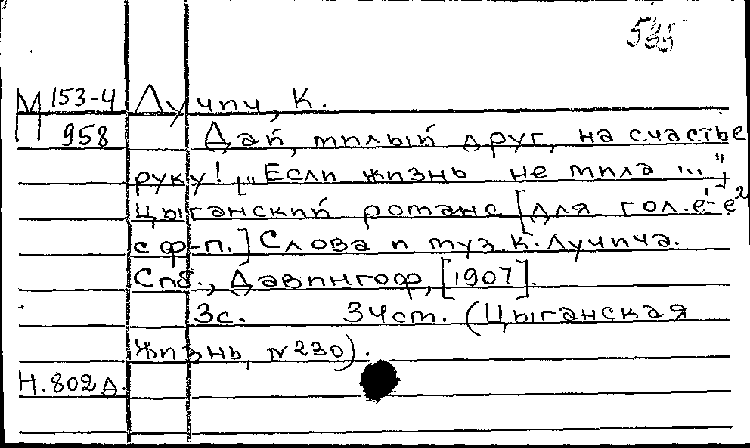 535
М 153-4 Лучич, К.
958 Дай, милый друг, на счастье
руку! ["Если жизнь не мила ..."]
Цыганский романс [для гол. e¹-e²
с ф-п.] Слова и муз. К. Лучича.
Спб., Давингоф, [1907].
3с. 34 ст. (Цыганская
жизнь, N 220).
Н. 802 д.